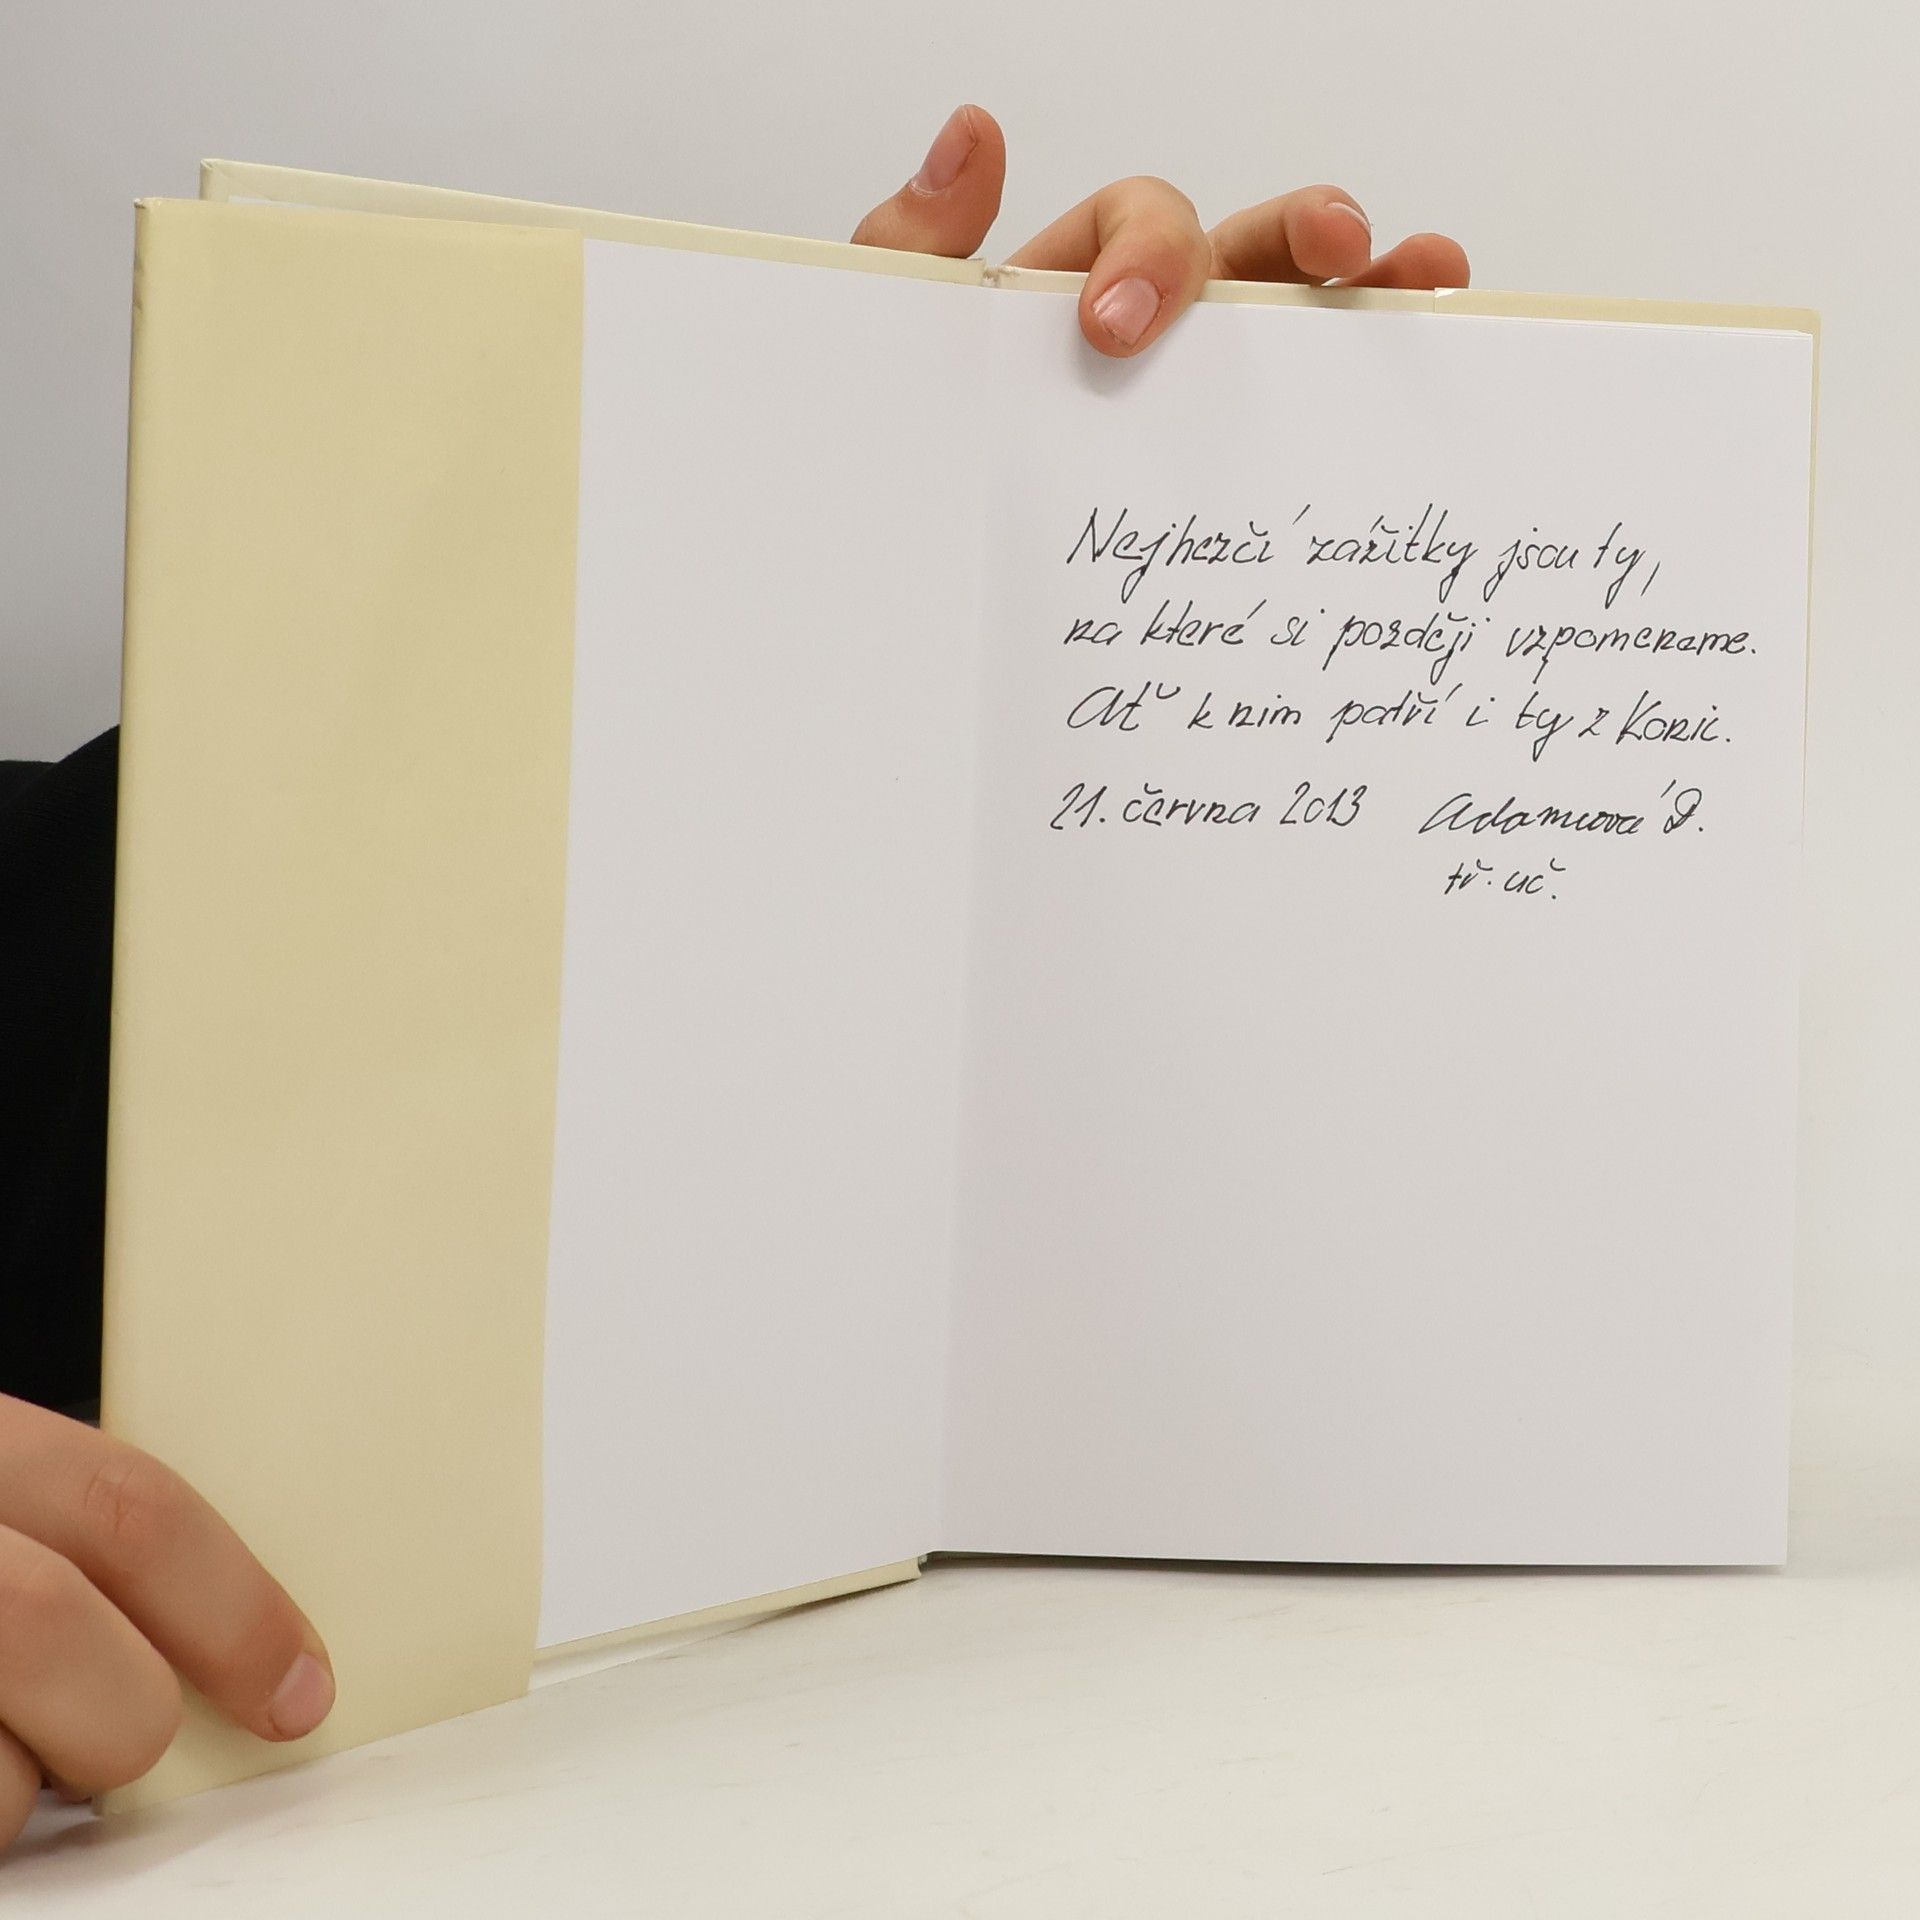 Nejhezčí zážitky jsou ty,
na které si později vzpomeneme.
Ať k nim patří i ty z Konic.
21. června 2013 Adamcová D.
tř. uč.